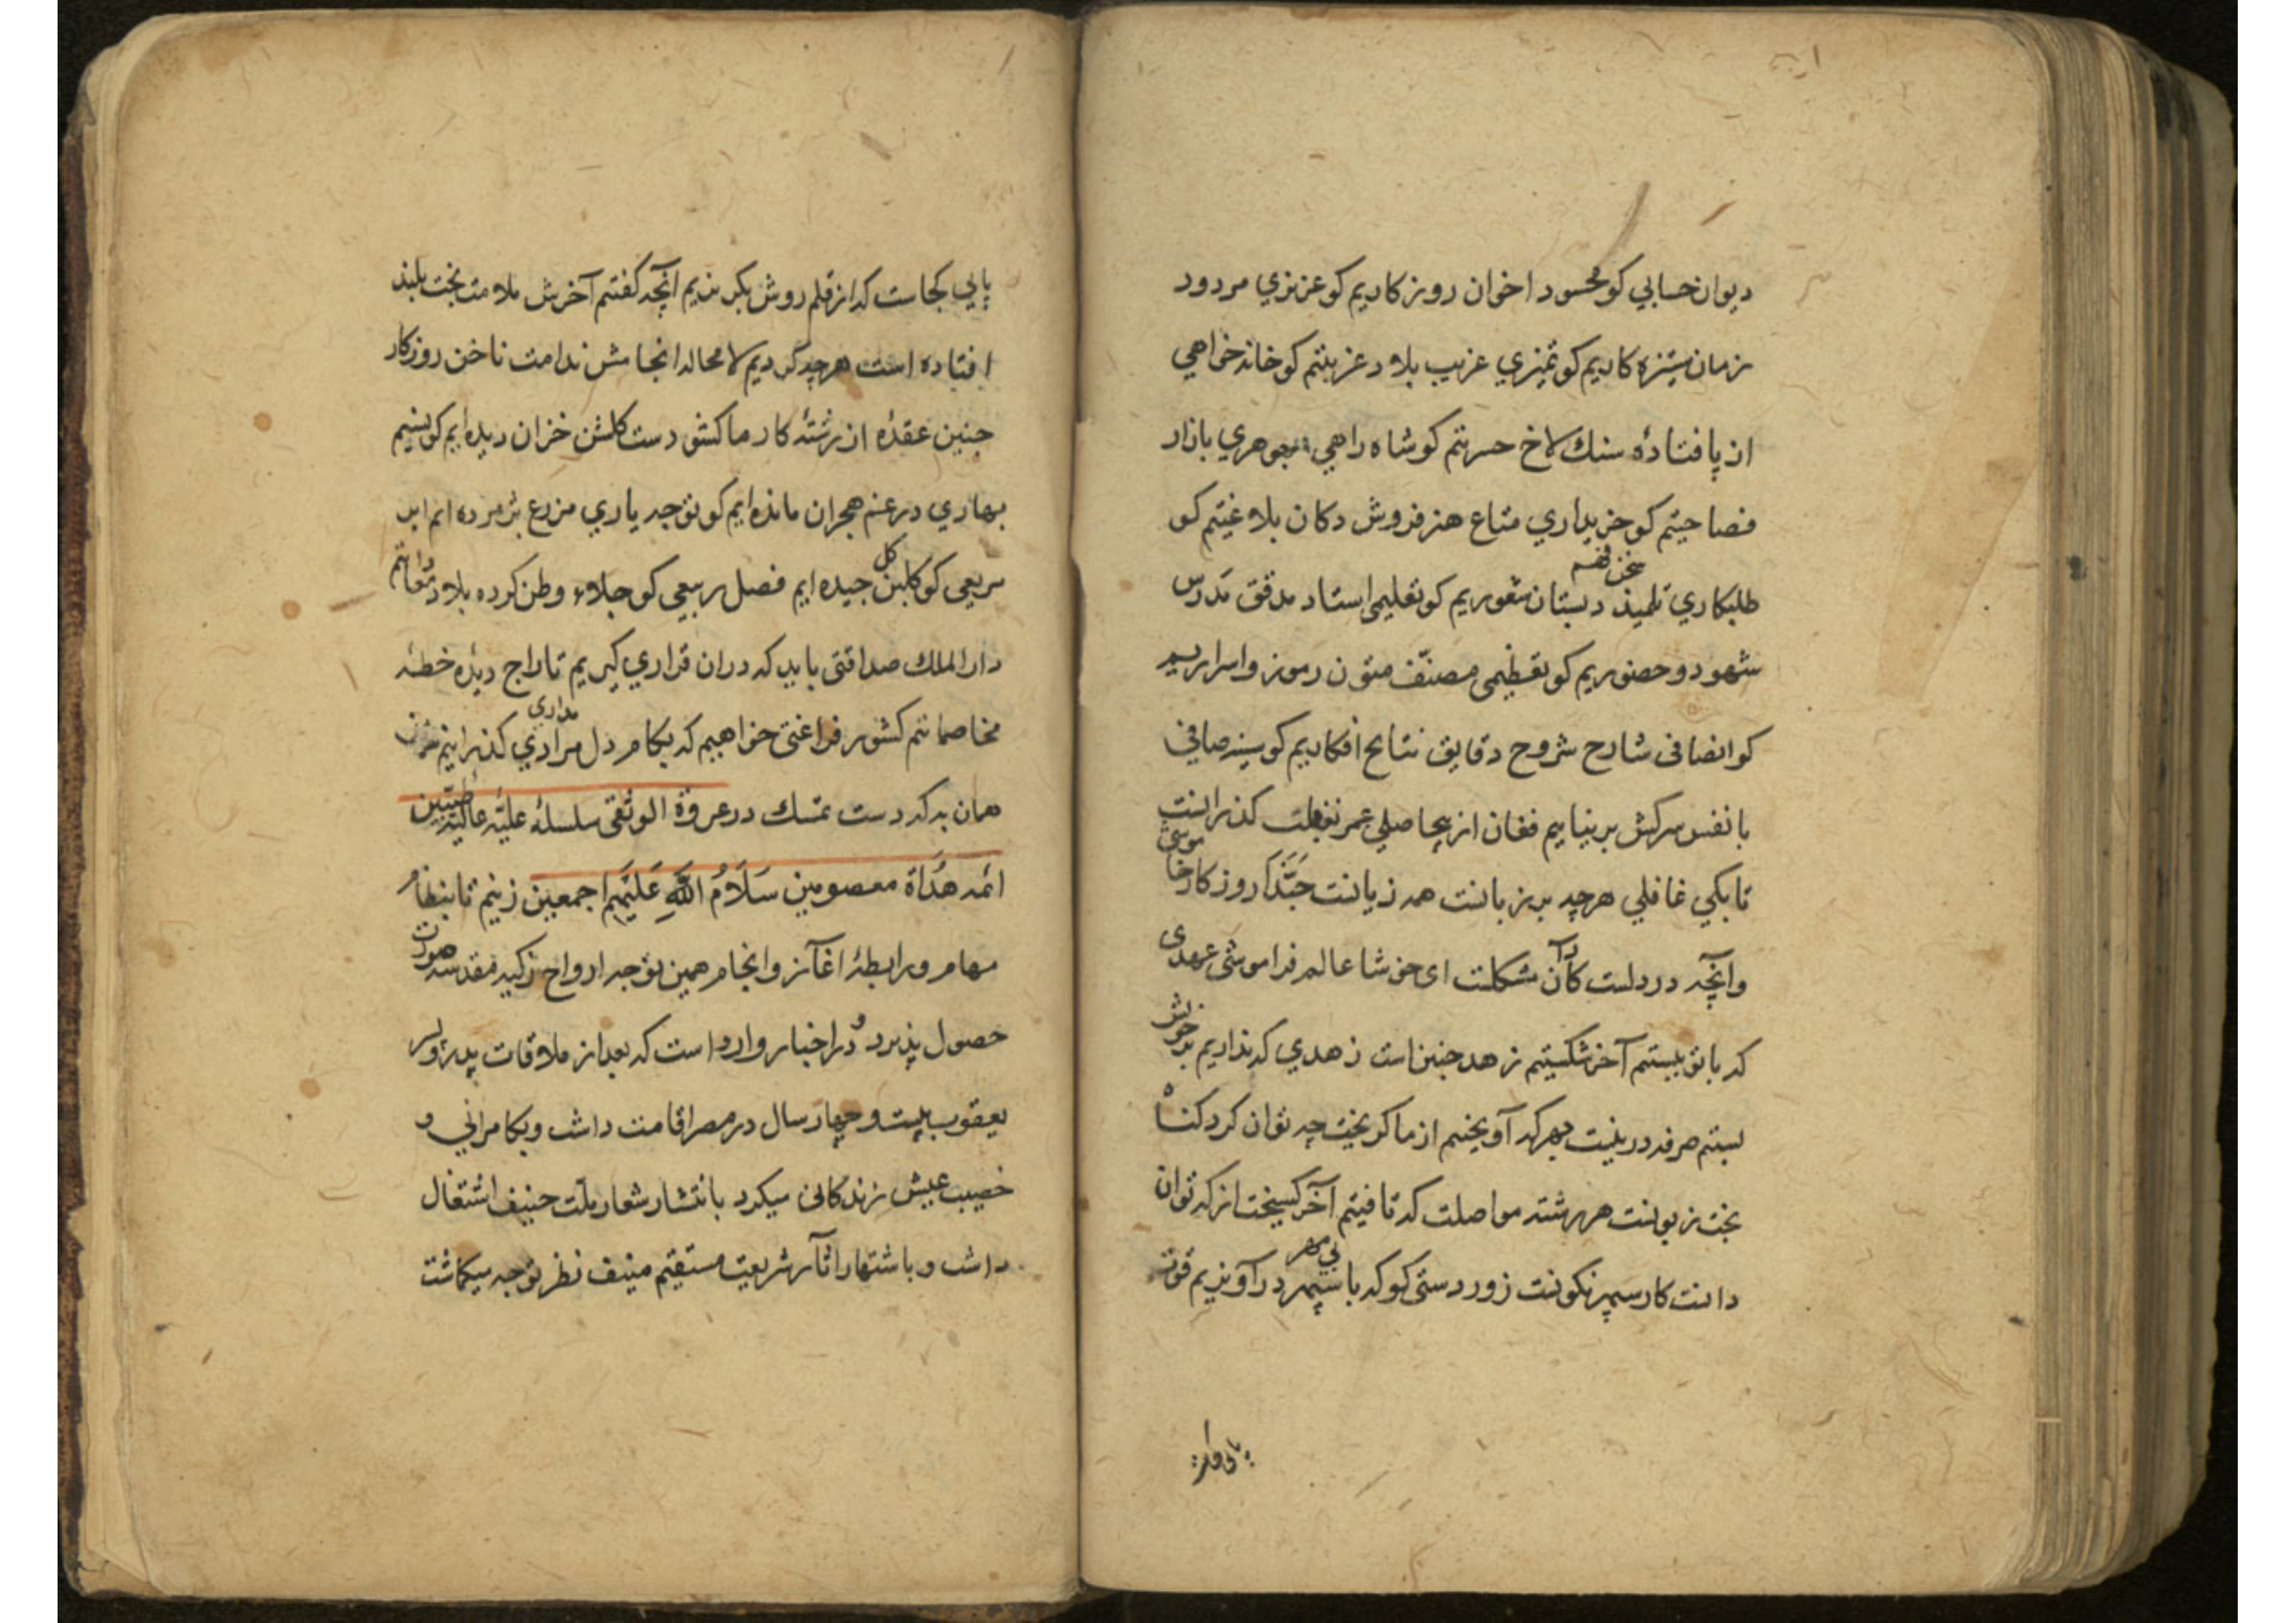 دیوان حسابي کو محسود اخوان روزکاریم کو عزیزي مردود
زمان ستیزه کاریم کو تمیزي غریب بلاد غربتم کو خانه خواهي
از پا فتادهٔ سنك لاخ حسرتم کو شاه راهي جوهري بازار
فصاحتیم کو خریداري متاع هنر فروش دکان بلاغتیم کو
سخن فهم
طلبکاري تلمیذ دبستان شعوریم کو تعلیمی استاد مدقق مدرس
شهود و حضوریم کو تعظیمی مصنّف متون رموز و اسراریم
کو انصافی شارح شروح دقایق نتایج افکاریم کو سینه صافي
با نفس سرکش بر نیاییم فغان از بیحاصلي عمر بغفلت کذرانست
تا بکي غافلي هرچه بر زبانت همه زیانت حَبَّذا روزکار خاموشی
وانچه در دلست کان مشکلت ای خوشا عالم فراموشی عهدی
که با تو ببستم آخر شکستیم زهد چنین است زهدي که نداریم بر خویش
بستم صرفه درینیت بهر که آویختیم از ما کریخت چه توان کرد کناه
بخت زبونست هر رشته مواصلت که تافتیم آخر کسیخت از که توان
بی مهر
دانست کار سپهر نکونت زور دستی کو که با سپهر در آویزیم قوت
پایی کجاست که از قلم روش بکریزیم آنچه کفتیم آخرش ملامت بخت بلند
افتاده است هرچه کردیم لا محاله انجامش ندامت ناخن روزکار
چنین عقدهٔ از رشتهٔ کار ما کشود دست کلشن خزان دیده ایم کو نسیم
بهاري در غم هجران مانده ایم کو توجه یاري مزرع پژمرده ایم ابر
کل
ربیعي کو کلبن چیده ایم فصل ربیعي کو جلاء وطن کرده بلاد
دار الملك صداقتی باید که دران قراري کیریم تاراج دیده خطهٔ
مداري
مخاصماتم کشور فراغتی خواهیم که بکام دل مرادي کذرانیم
همان به که دست تمسك در عروة الوثقی سلسلهٔ علیّه عالیّه طیّبین
ائمه هُدَاة معصومین سَلَامُ اللهِ عَلَیْهِم اجمعین زنیم تا بنظام
مهام و رابطهٔ اغآز و انجام همین توجه ارواح زکیه مقدسه صورت
حصول پذیرد و در اخبار وارد است که بعد از ملاقات پدر و پسر
یعقوب بیست و چهار سال در مصر اقامت داشت و بکامراني و
خصیب عیش زندکانی میکرد بانتشار شعار ملّت حنیف اشتغال
داشت و باشتهار اثآر شریعت مستقیم منیف نظر توجه میکماشت